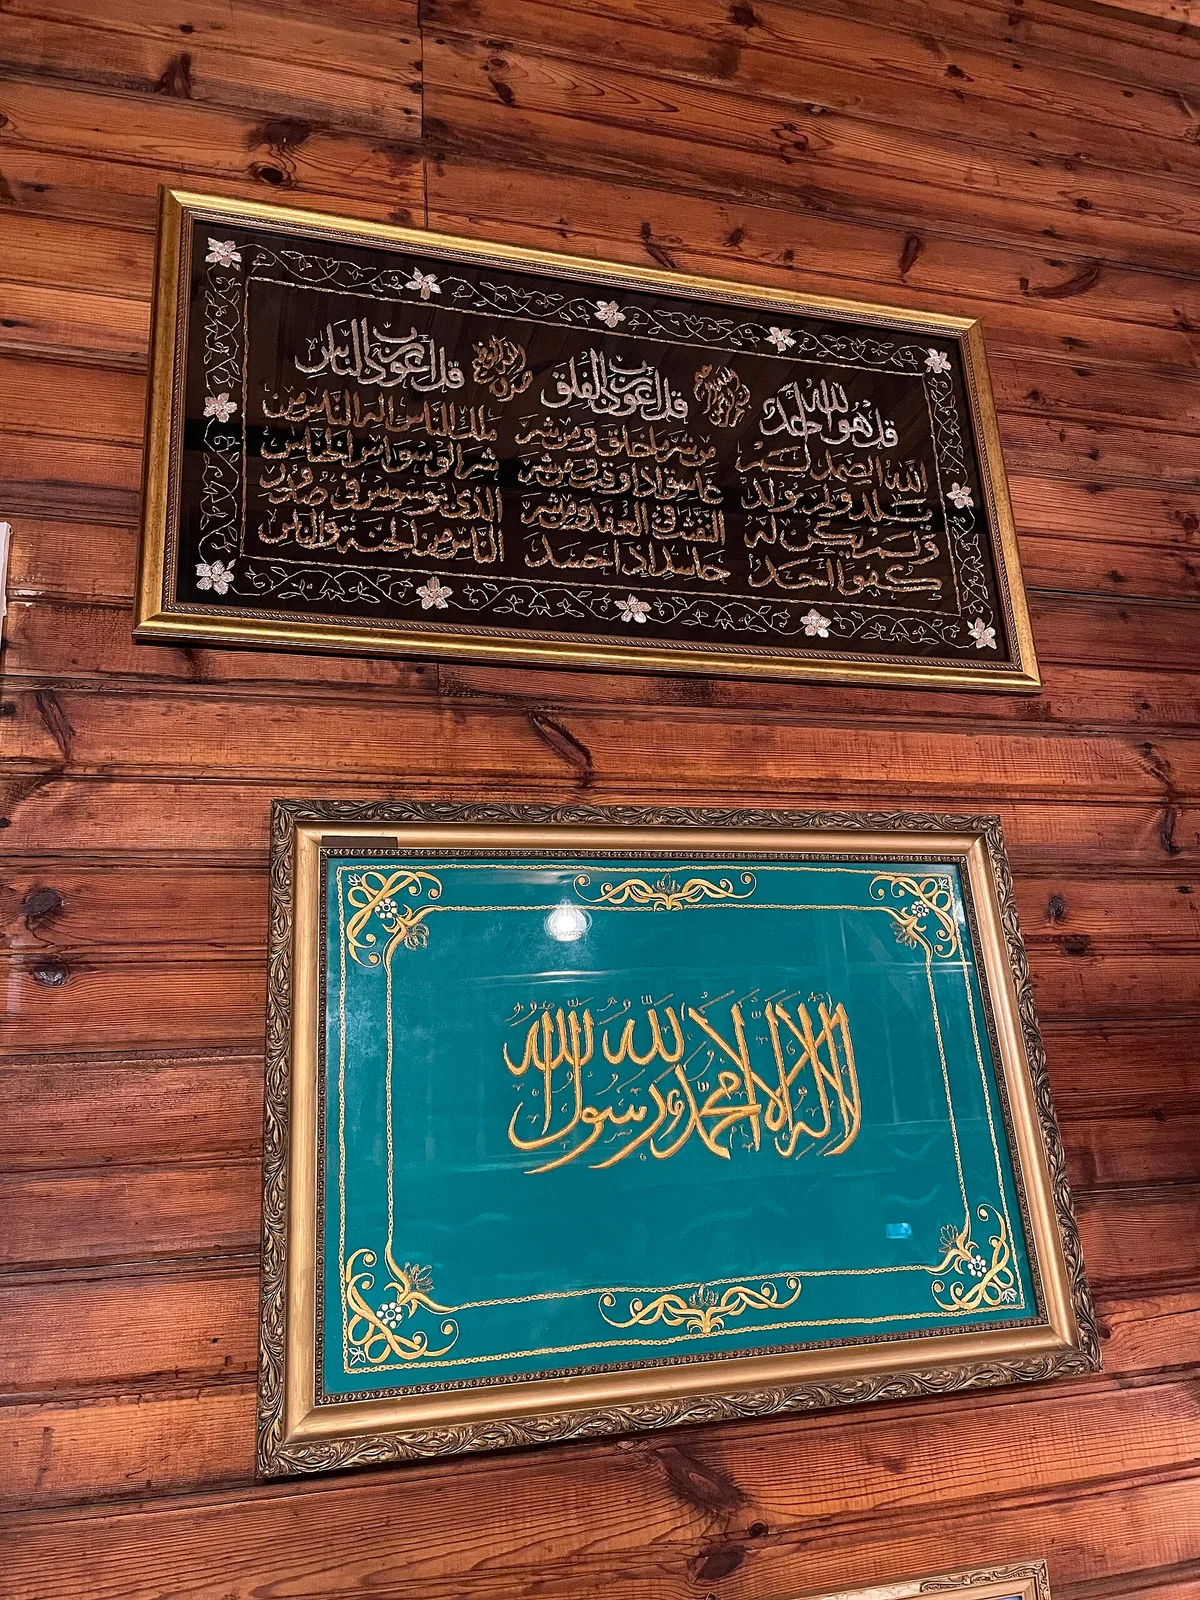 قل هو الله أحد
الله الصمد لم
يلد ولم يولد
ولم يكن له
كفوا أحد
قل أعوذ برب الفلق
من شر ما خلق ومن شر
غاسق اذا وقب ومن شر
النفثت في العقد ومن شر
حاسد اذا حسد
قل أعوذ برب الناس
ملك الناس اله الناس من
شر الوسواس الخناس
الذي يوسوس في صدور
الناس من الجنة والناس
لا إله إلا الله محمد رسول الله